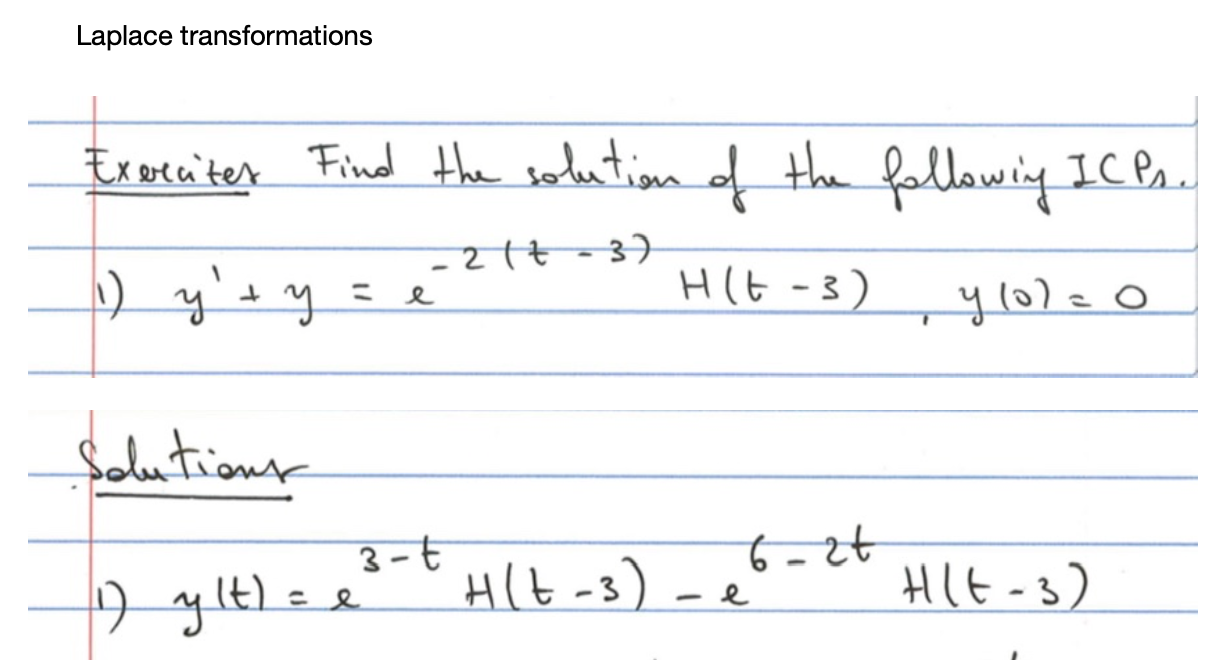 Laplace transformations
Exercites Find the solution of the following ICPs.
1) y' + y = e^{-2(t-3)} H(t-3), y(0) = 0
Solutions
1) y(t) = e^{3-t} H(t-3) - e^{6-2t} H(t-3)